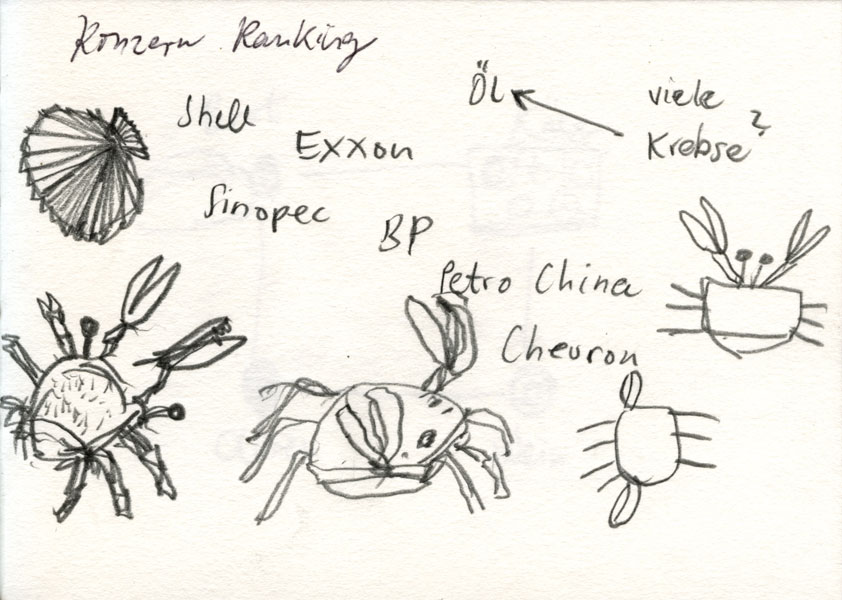 Konzern Ranking
Shell
Exxon
Sinopec
BP
Petro China
Chevron
Öl
viele
Krebse?